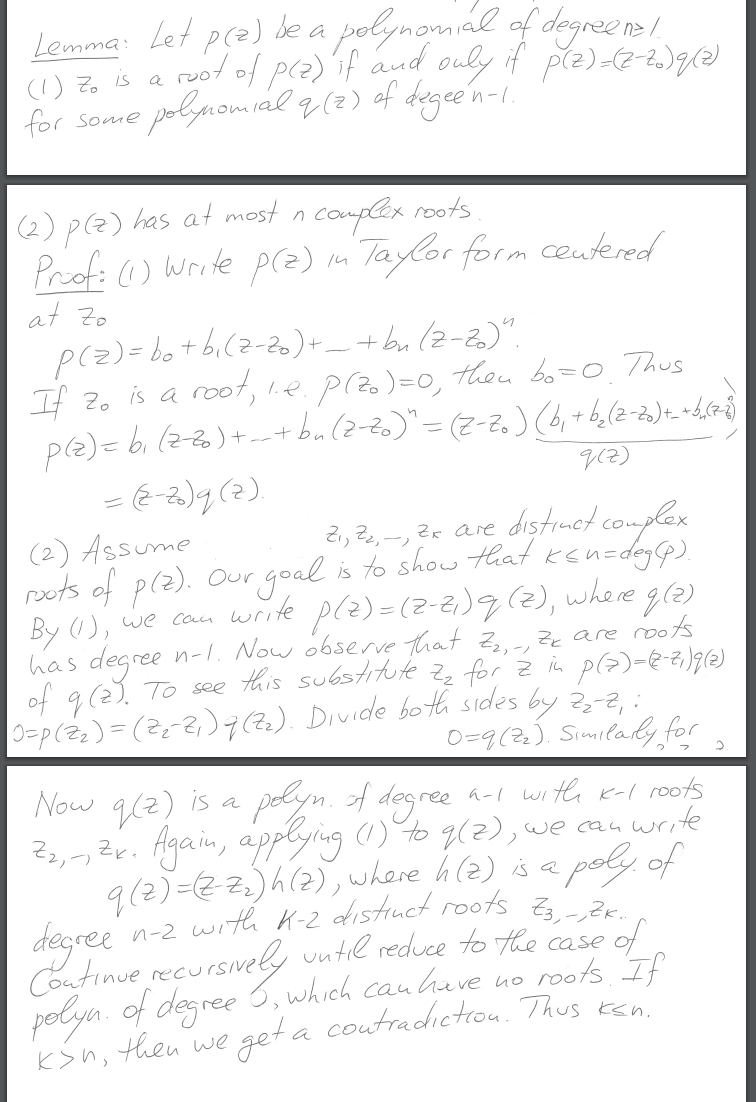 Lemma: Let p(z) be a polynomial of degree n≥1.
(1) z₀ is a root of p(z) if and only if p(z)=(z-z₀)q(z)
for some polynomial q(z) of degee n-1.
(2) p(z) has at most n complex roots.
Proof: (1) Write p(z) in Taylor form centered
at z₀
p(z)=b₀+b₁(z-z₀)+...+bₙ(z-z₀)ⁿ.
If z₀ is a root, i.e. p(z₀)=0, then b₀=0. Thus
p(z)=b₁(z-z₀)+...+bₙ(z-z₀)ⁿ=(z-z₀)(b₁+b₂(z-z₀)+...+bₙ(z-z₀)
q(z)
=(z-z₀)q(z).
(2) Assume z₁,z₂,...,zₖ are distinct complex
roots of p(z). Our goal is to show that k≤n=deg(p).
By (1), we can write p(z)=(z-z₁)q(z), where q(z)
has degree n-1. Now observe that z₂,...,zₖ are roots
of q(z). To see this substitute z₂ for z in p(z)=(z-z₁)q(z)
0=p(z₂)=(z₂-z₁)q(z₂). Divide both sides by z₂-z₁:
0=q(z₂). Similarly for
Now q(z) is a polyn. of degree n-1 with k-1 roots
z₂,...,zₖ. Again, applying (1) to q(z), we can write
q(z)=(z-z₂)h(z), where h(z) is a poly. of
degree n-2 with k-2 distinct roots z₃,...,zₖ..
Continue recursively until reduce to the case of
polyn. of degree 0, which can have no roots. If
k>n, then we get a contradiction. Thus k≤n.